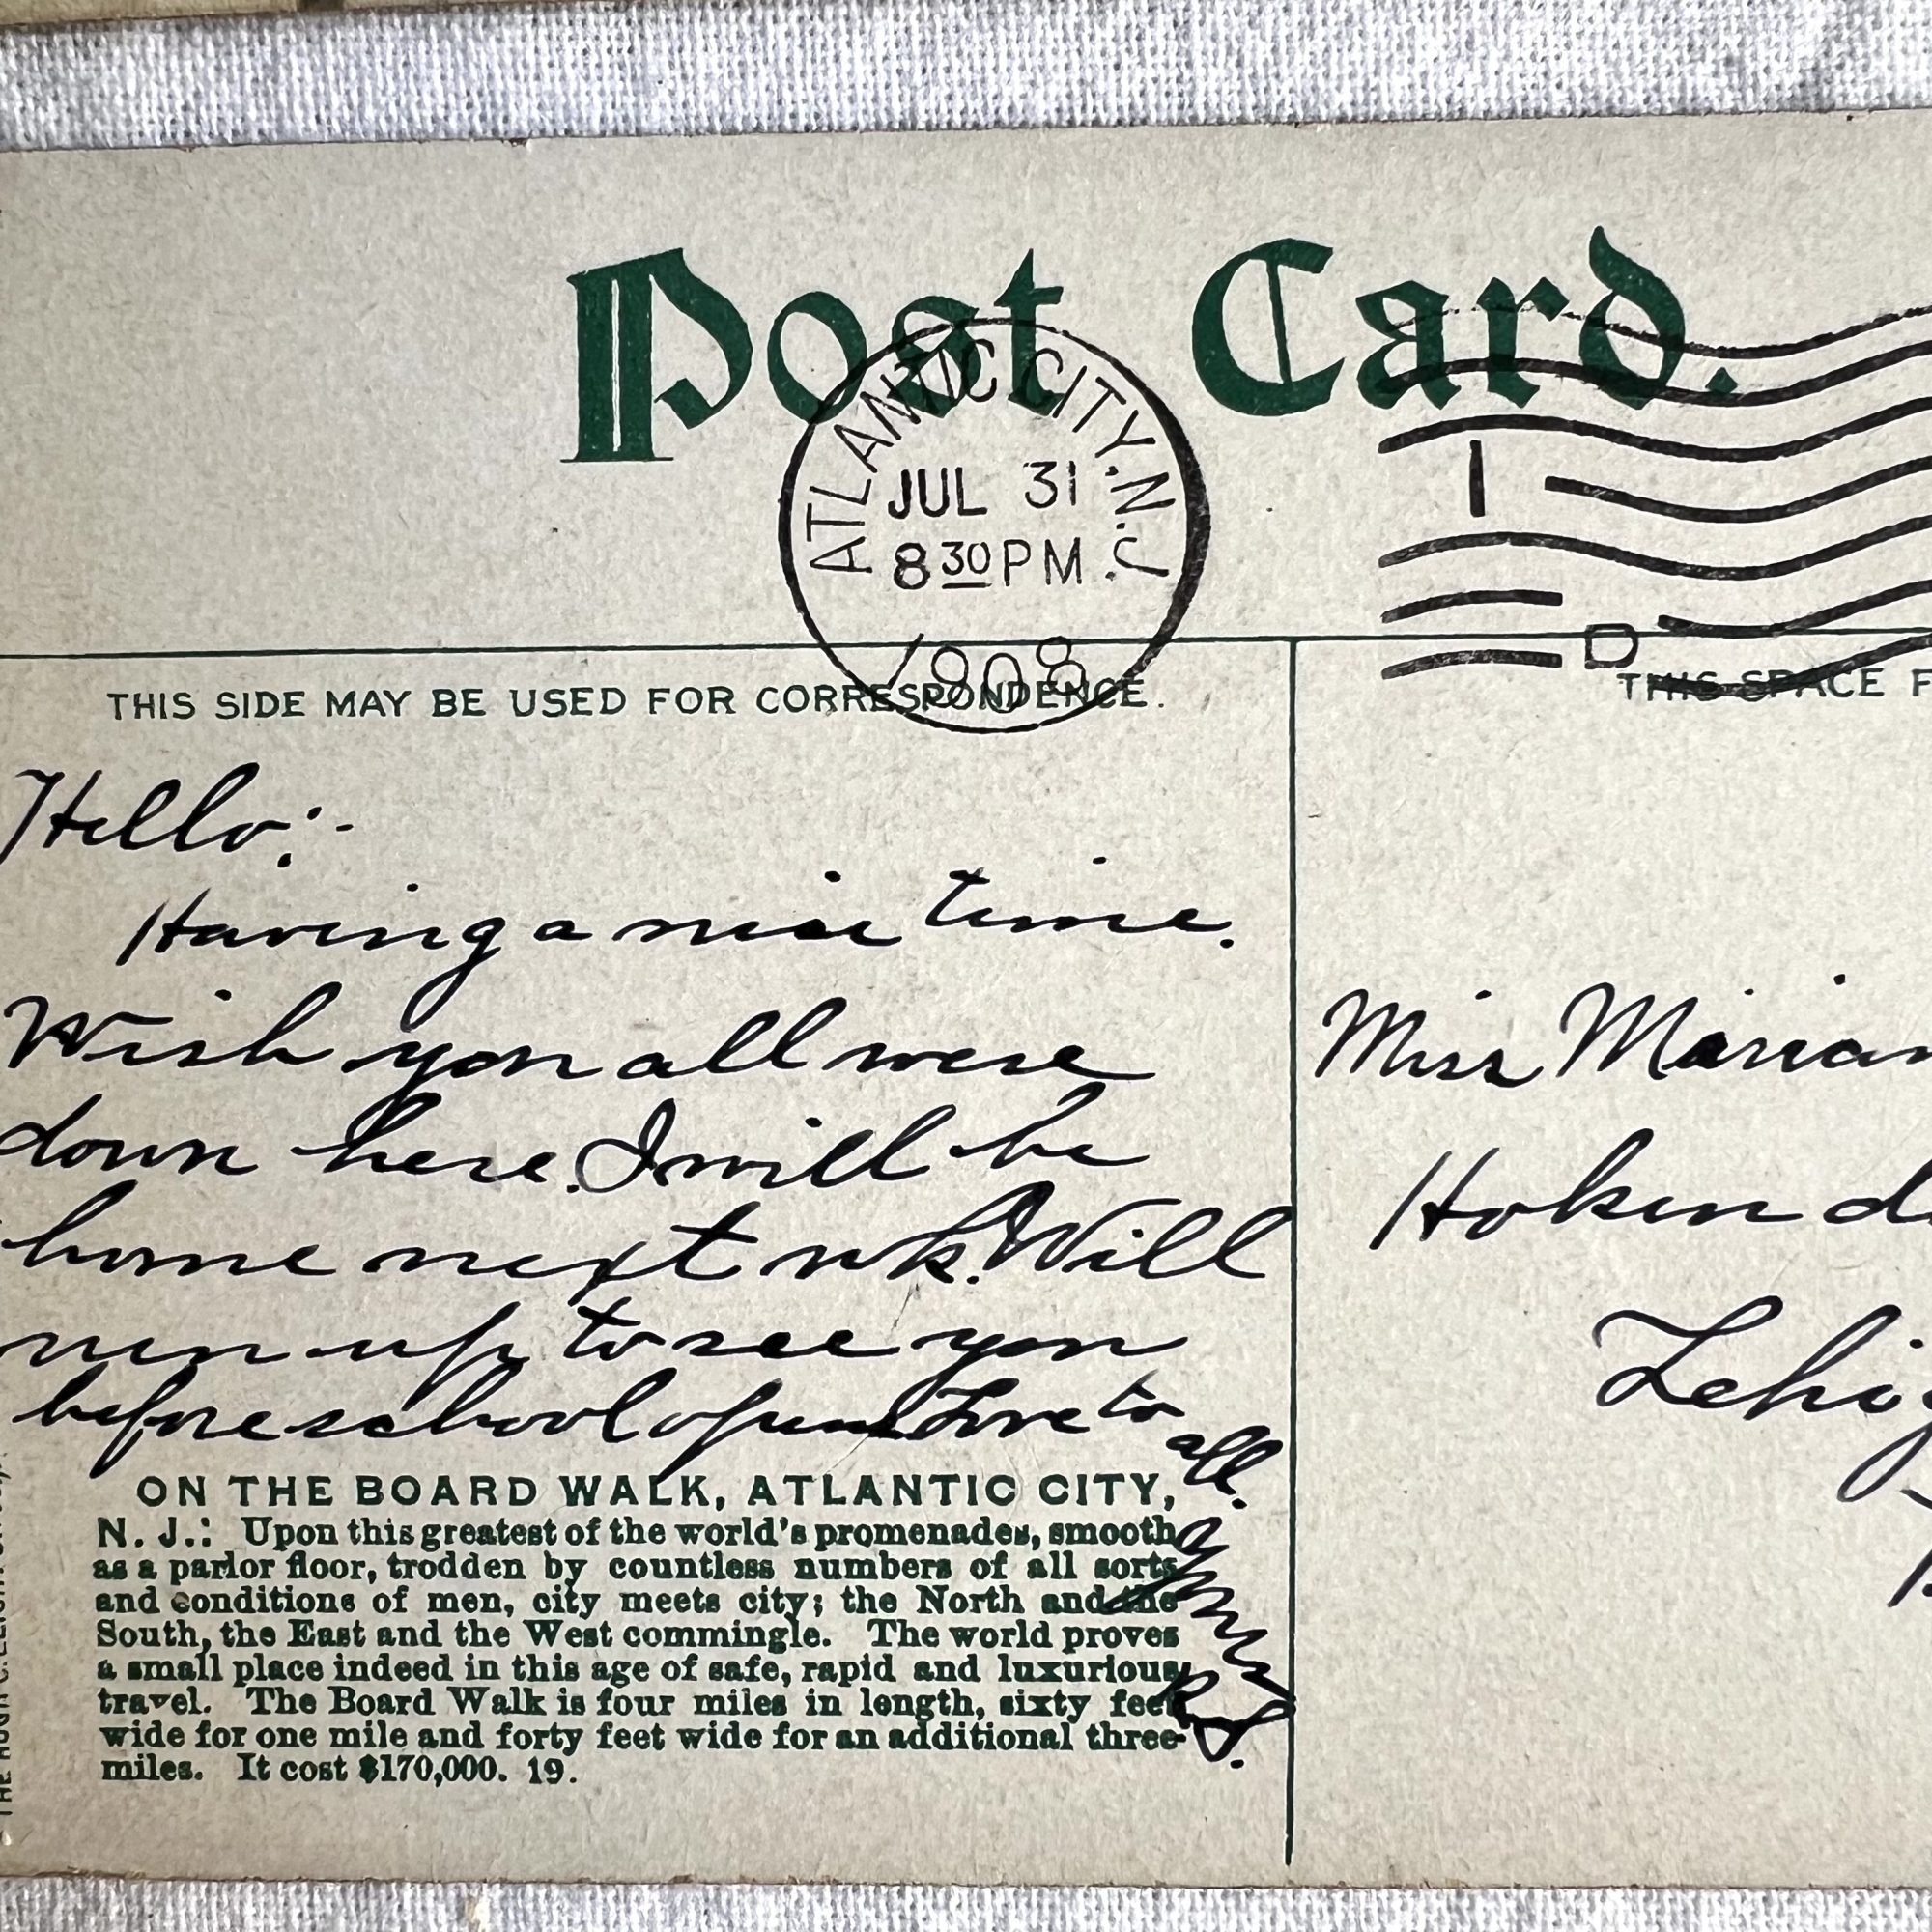 Post Card.
ATLANTIC CITY, N.J.
JUL 31
8 30 PM
1908
1
D
THIS SIDE MAY BE USED FOR CORRESPONDENCE.
THIS SPACE F
Hello:-
Having a nice time.
Wish you all were
down here. I will be
home next wk. Will
run up to see you
before school opens. Love to
all.
R.S.
Miss Marian
Hokend
Lehig
ON THE BOARD WALK, ATLANTIC CITY,
N. J.: Upon this greatest of the world's promenades, smooth
as a parlor floor, trodden by countless numbers of all sorts
and conditions of men, city meets city; the North and the
South, the East and the West commingle. The world proves
a small place indeed in this age of safe, rapid and luxurious
travel. The Board Walk is four miles in length, sixty feet
wide for one mile and forty feet wide for an additional three
miles. It cost $170,000. 19.